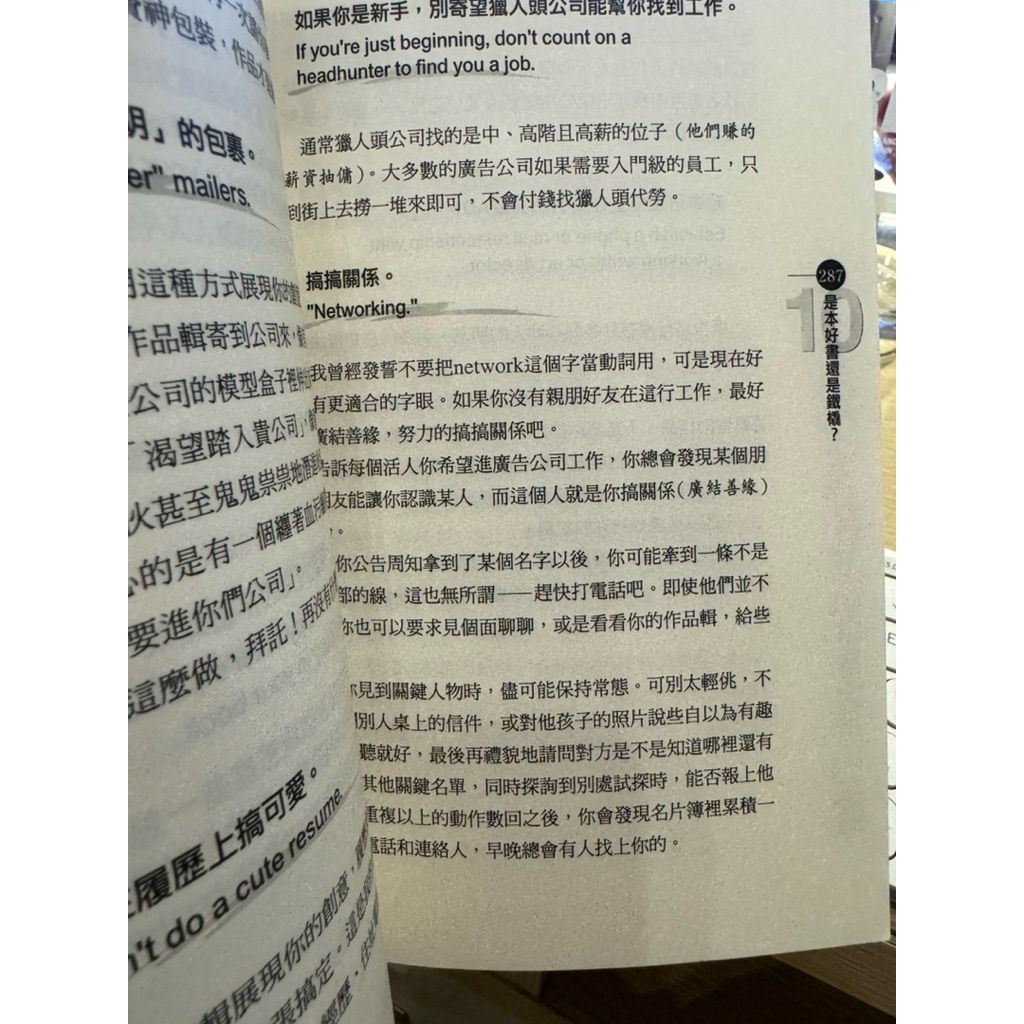 神包裝，作品才
明」的包裹。
er" mailers.
這種方式展現你的創意
作品輯寄到公司來，
公司的模型盒子裡
「渴望踏入貴公司」，
火甚至鬼鬼祟祟地潛進
的是有一個纏著血污
要進你們公司」。
這麼做，拜託！再沒有
履歷上搞可愛。
n't do a cute resume.
輯展現你的創意，
張搞定。這是
經歷，
如果你是新手，別寄望獵人頭公司能幫你找到工作。
If you're just beginning, don't count on a
headhunter to find you a job.
通常獵人頭公司找的是中、高階且高薪的位子（他們賺的
薪資抽傭）。大多數的廣告公司如果需要入門級的員工，只
到街上去撈一堆來即可，不會付錢找獵人頭代勞。
搞搞關係。
"Networking."
我曾經發誓不要把network這個字當動詞用，可是現在好
有更適合的字眼。如果你沒有親朋好友在這行工作，最好
廣結善緣，努力的搞搞關係吧。
告訴每個活人你希望進廣告公司工作，你總會發現某個朋
友能讓你認識某人，而這個人就是你搞關係（廣結善緣）
。
你公告周知拿到了某個名字以後，你可能牽到一條不是
部的線，這也無所謂——趕快打電話吧。即使他們並不
你也可以要求見個面聊聊，或是看看你的作品輯，給些
你見到關鍵人物時，儘可能保持常態。可別太輕佻，不
別人桌上的信件，或對他孩子的照片說些自以為有趣
聽就好，最後再禮貌地請問對方是不是知道哪裡還有
其他關鍵名單，同時探詢到別處試探時，能否報上他
重複以上的動作數回之後，你會發現名片簿裡累積一
電話和連絡人，早晚總會有人找上你的。
287
10
是本好書還是鐵橇？